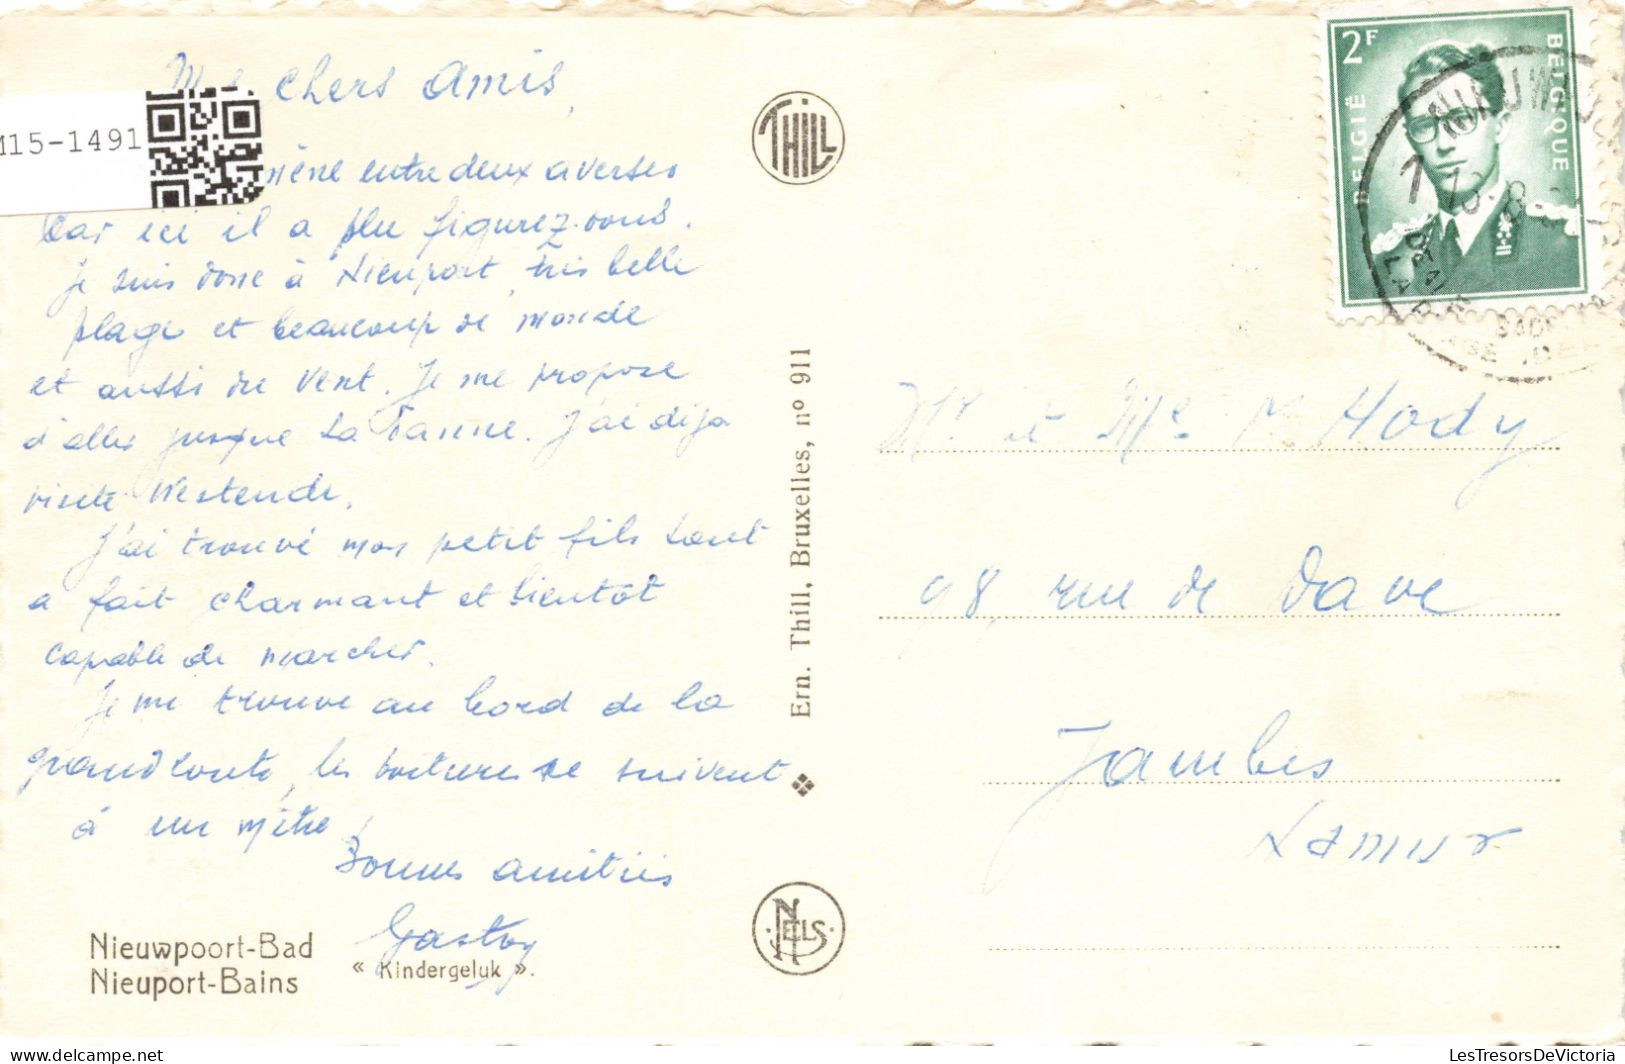 Mes chers amis,
M15-1491
entre deux averses
Car ici il a plu figurez-vous.
Je suis donc à Nieuport, très belle
plage et beaucoup de monde
et aussi du vent. Je me propose
d'aller jusque La Panne. J'ai déja
visité Westende.
J'ai trouvé mon petit fils tout
a fait charmant et bientôt
capable de marcher.
Je me trouve au bord de la
grand route, les voitures se suivent
à un mètre!
Bonnes amitiés
Gaston
Nieuwpoort-Bad
Nieuport-Bains
« Kindergeluk ».
THILL
Ern. Thill, Bruxelles, nº 911
NELS
2F
BELGIË
BELGIQUE
Mr et Me Hody
98, rue de Dave
Jambes
Namur
LesTresorsDeVictoria.com
LesTresorsDeVictoria